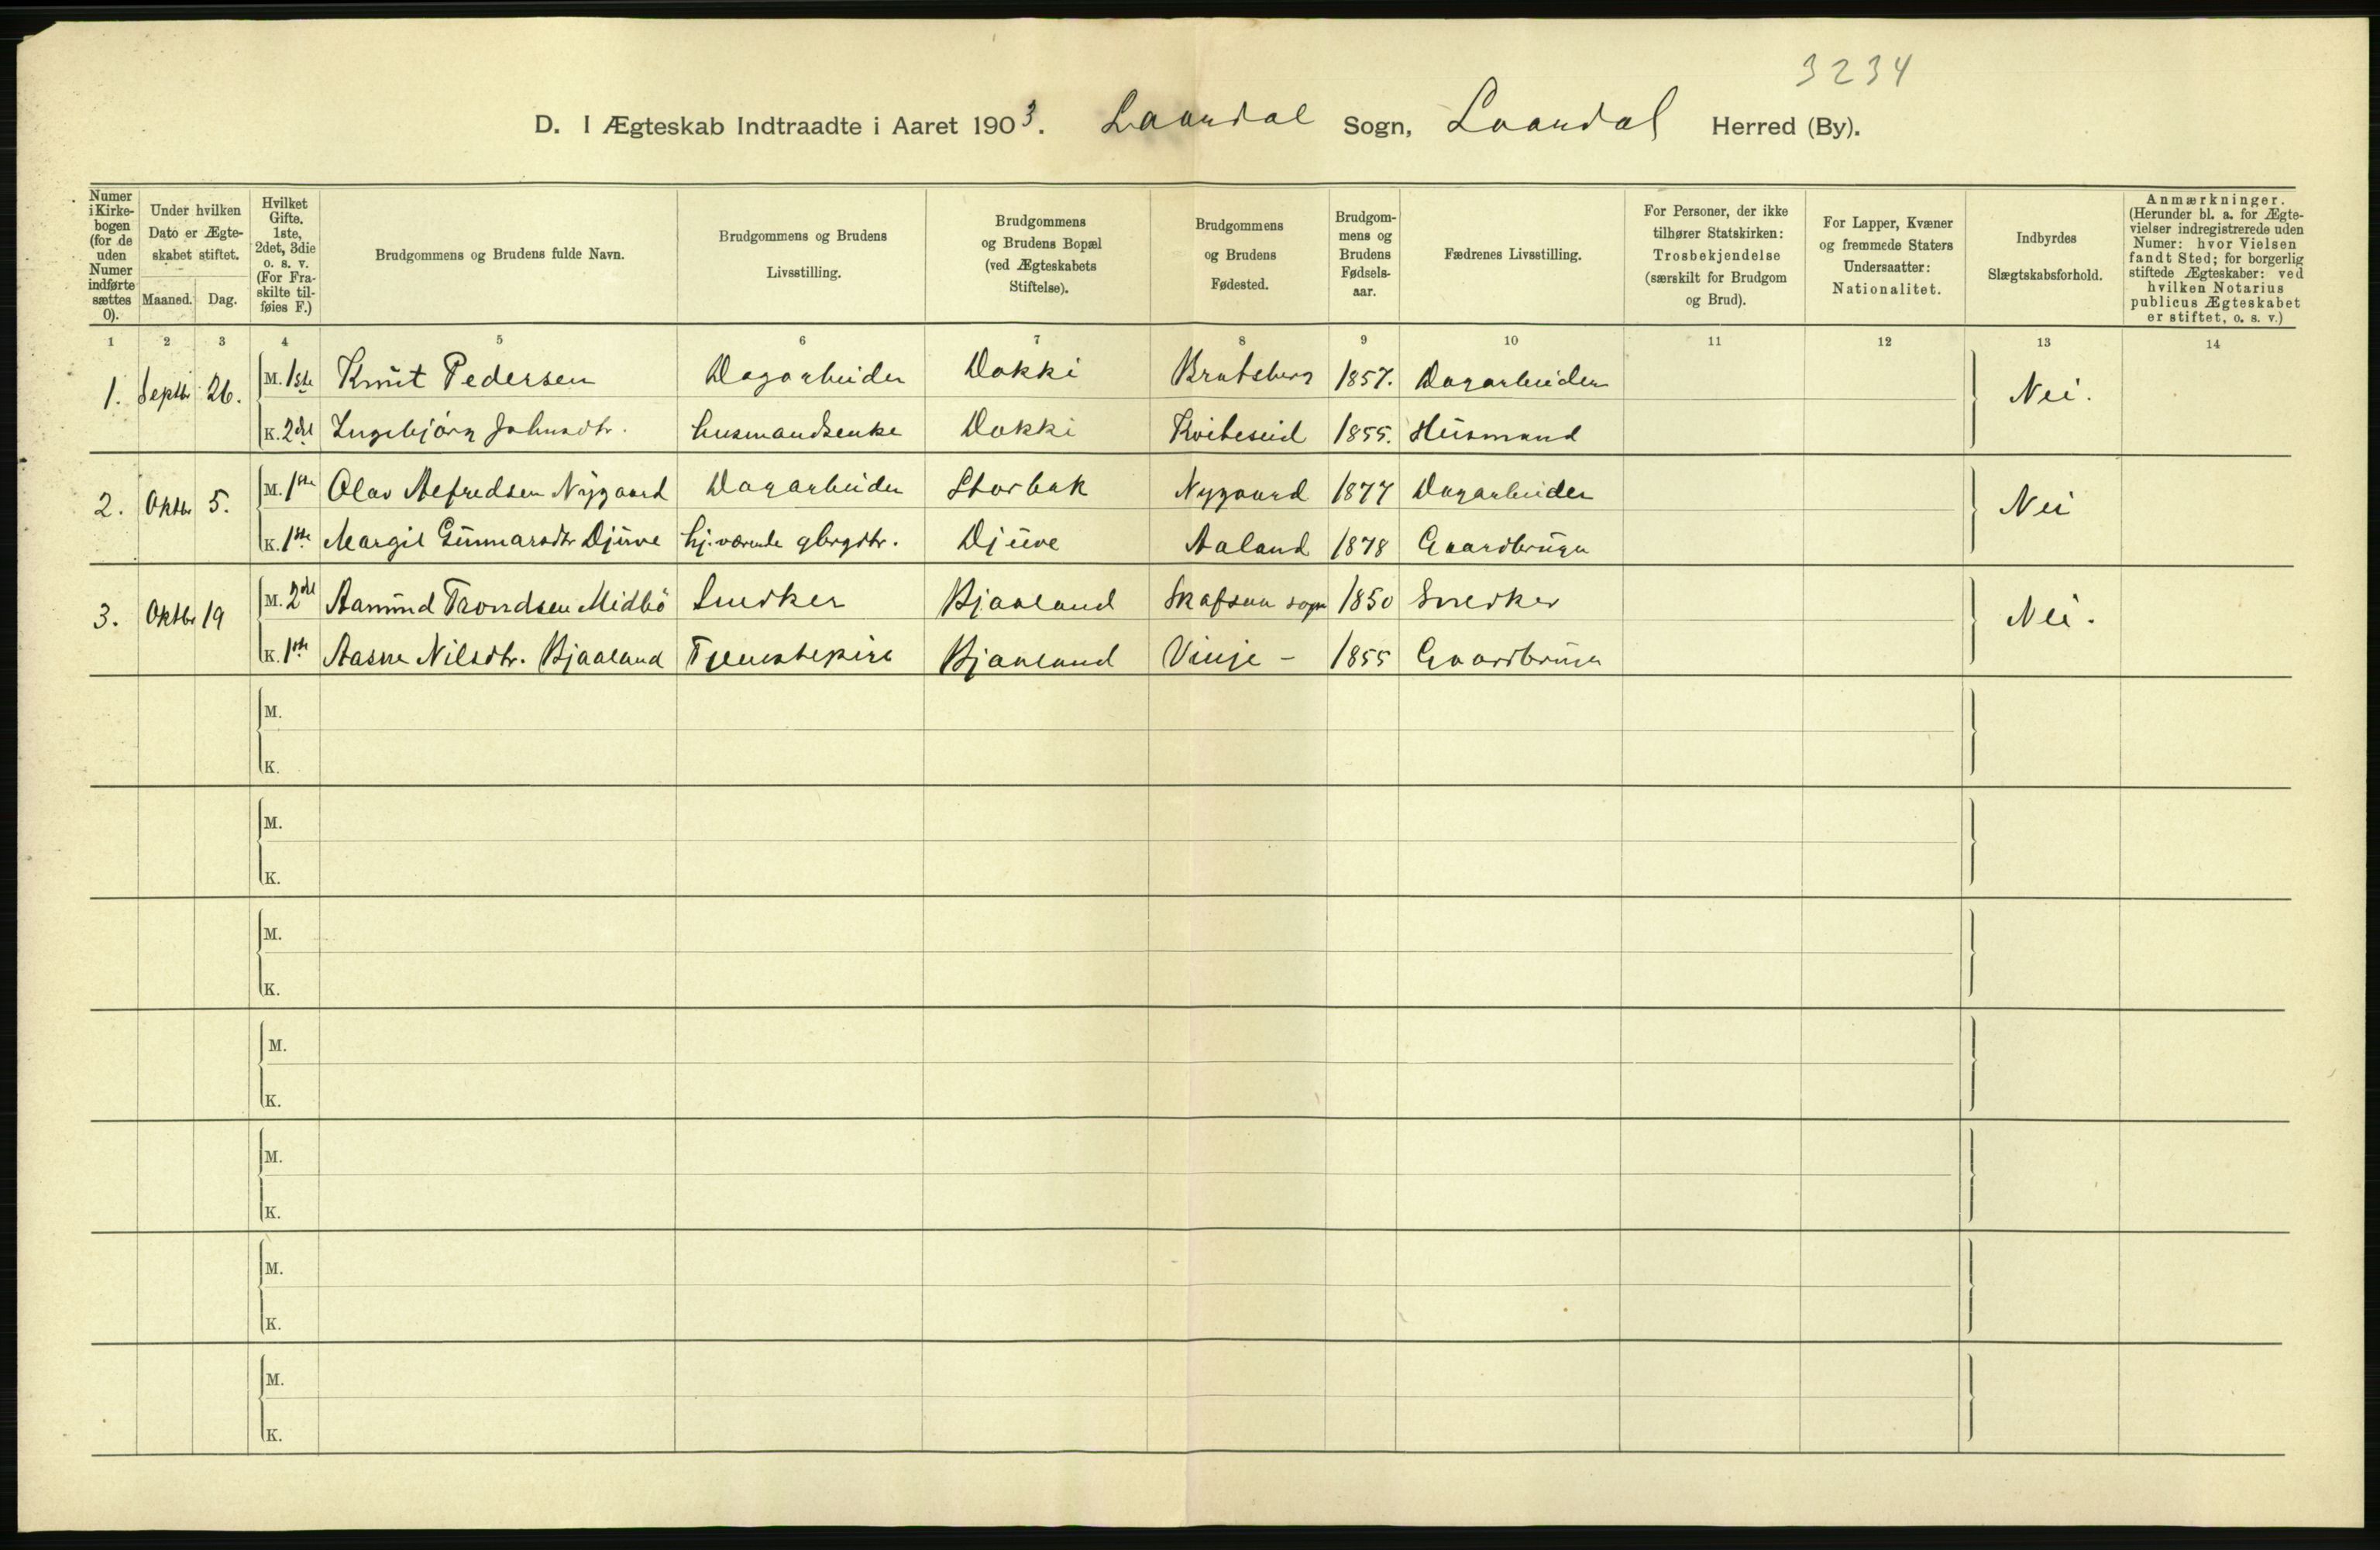 3234
D. I Ægteskab Indtraadte i Aaret 1903. Laardal Sogn, Laardal Herred (By).
Numer i Kirke-bogen (for de uden Numer indførte sættes 0).
Under hvilken Dato er Ægte-skabet stiftet.
Maaned. Dag.
Hvilket Gifte. 1ste, 2det, 3die o. s. v. (For Fra-skilte til-føies F.)
Brudgommens og Brudens fulde Navn.
Brudgommens og Brudens Livsstilling.
Brudgommens og Brudens Bopæl (ved Ægteskabets Stiftelse).
Brudgommens og Brudens Fødested.
Brudgom-mens og Brudens Fødsels-aar.
Fædrenes Livsstilling.
For Personer, der ikke tilhører Statskirken: Trosbekjendelse (særskilt for Brudgom og Brud).
For Lapper, Kvæner og fremmede Staters Undersaatter: Nationalitet.
Indbyrdes Slægtskabsforhold.
Anmærkninger. (Herunder bl. a. for Ægte-vielser indregistrerede uden Numer: hvor Vielsen fandt Sted; for borgerlig stiftede Ægteskaber: ved hvilken Notarius publicus Ægteskabet er stiftet, o. s. v.)
1 2 3 4 5 6 7 8 9 10 11 12 13 14
1. Septb. 26. M. 1ste Knut Pedersen Dagarbeider Dokki Bratsberg 1857. Dagarbeider Nei.
K. 2det Ingebjörg Johnsdtr. husmandsenke Dokki Kviteseid 1855. Husmand
2. Oktbr 5. M. 1ste Olav Alfredsen Nygaard Dagarbeider Storbak Nygaard 1877 Dagarbeider Nei
K. 1ste Margit Gunnarsdtr Djuve hj. værende gbrgdtr. Djuve Aaland 1878 Gaardbruger
3. Oktbr 19 M. 2det Aamund Trondsen Midbö Snedker Bjaaland Skafsaa sogn 1850 Snedker Nei.
K. 1ste Aasne Nilsdtr. Bjaaland Tjenestepige Bjaaland Vinje - 1855 Gaardbruger
M.
K.
M.
K.
M.
K.
M.
K.
M.
K.
M.
K.
M.
K.